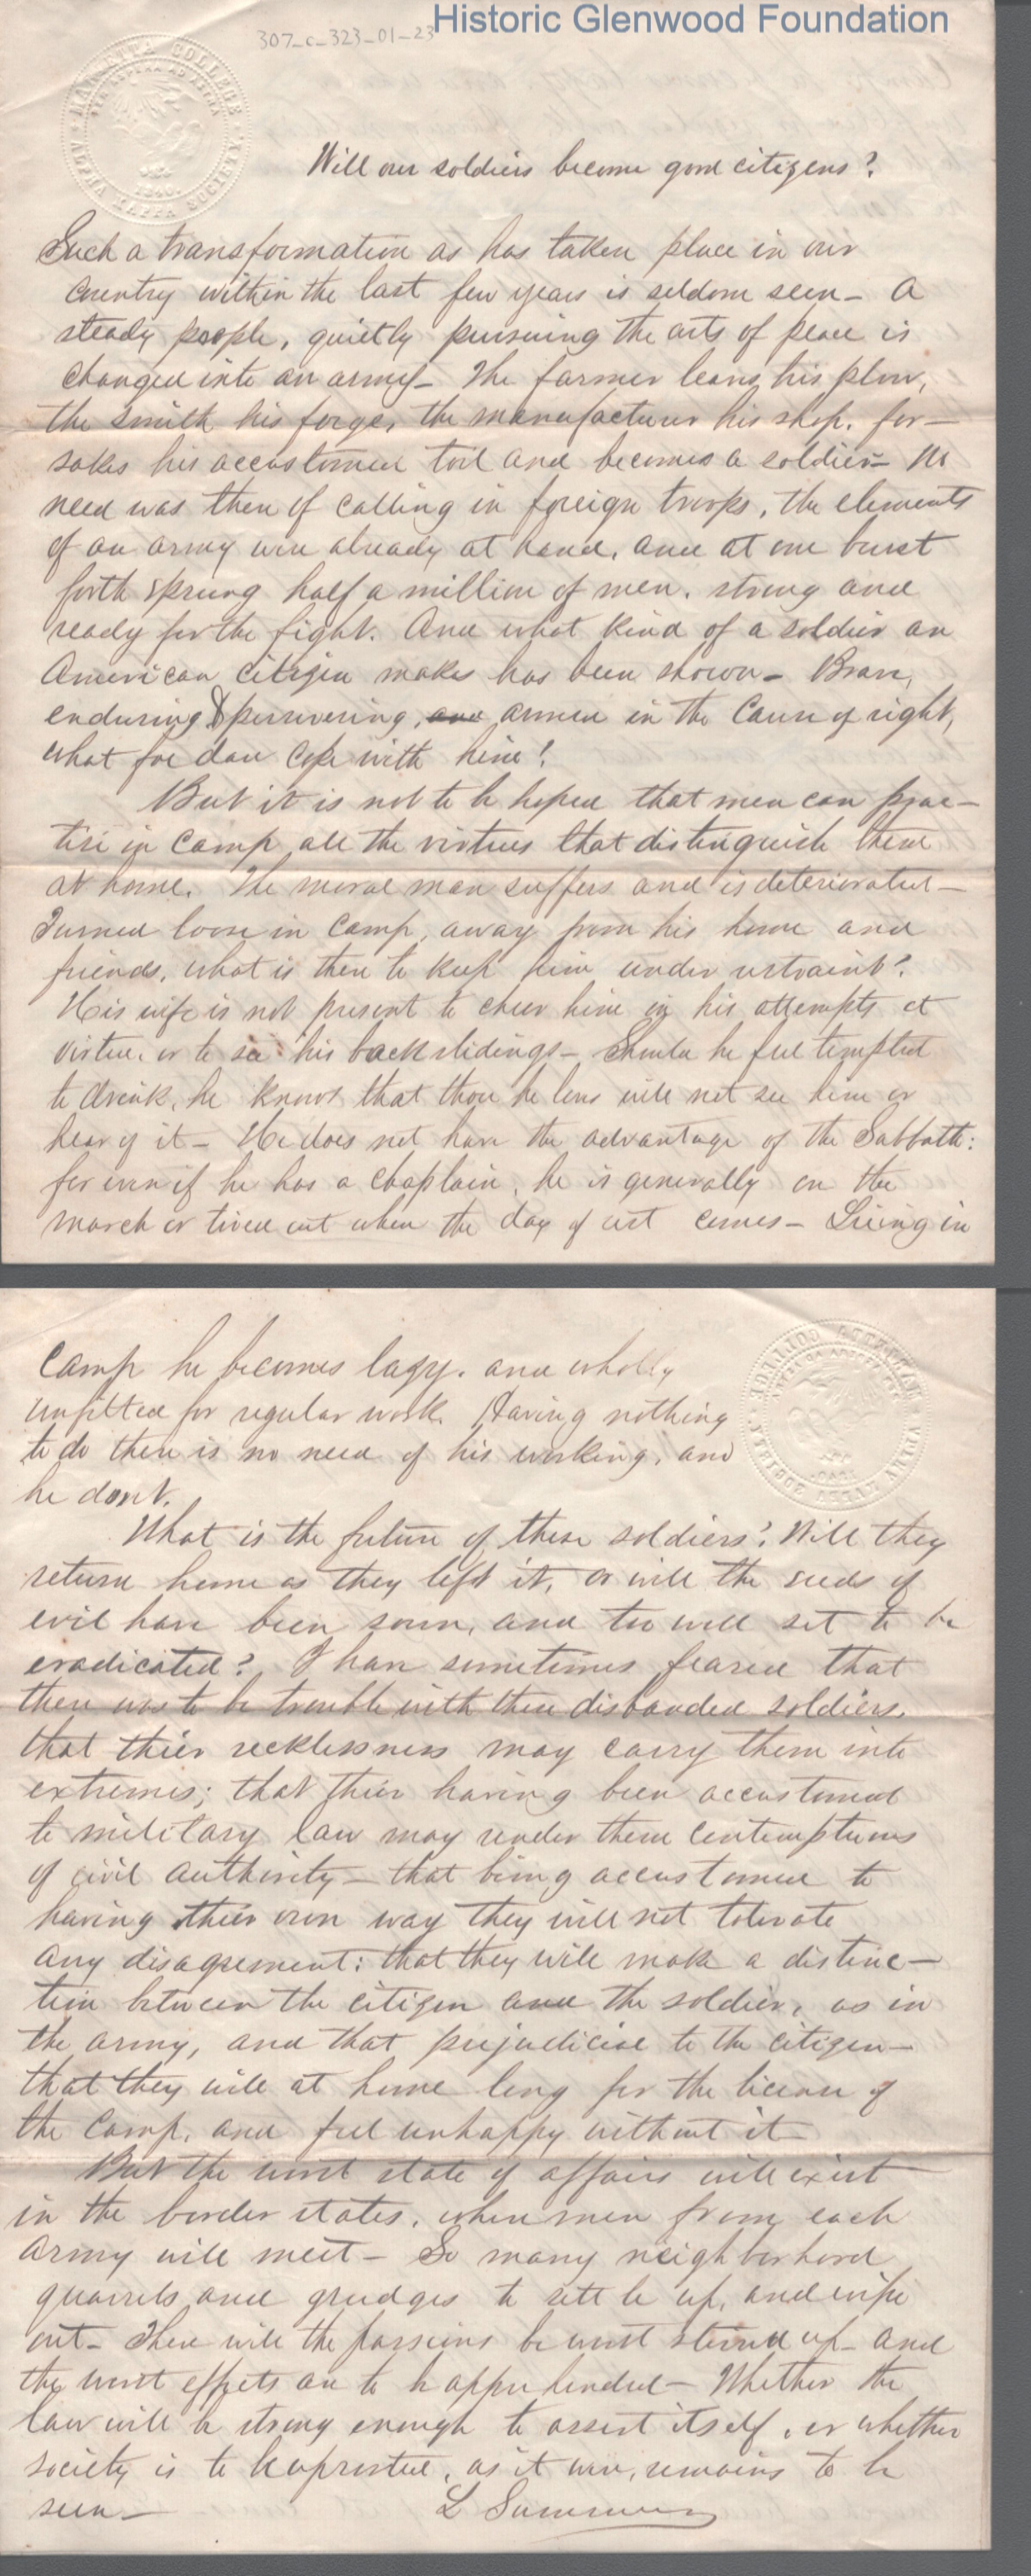 Historic Glenwood Foundation
307_c_323_01-23
MARIETTA COLLEGE
ALPHA KAPPA SOCIETY
1840
Will our soldiers become good citizens?
Such a transformation as has taken place in our
country within the last few years is seldom seen – A
steady people, quietly pursuing the arts of peace is
changed into an army – The farmer leaves his plow,
the smith his forge, the manufacturer his shop, for–
sakes his accustomed toil and becomes a soldier – No
need was there of calling in foreign troops, the elements
of an army were already at hand, and at one burst
forth sprung half a million of men, strong and
ready for the fight. And what kind of a soldier an
American citizen makes has been shown – Brave,
enduring & persevering, and armed in the cause of right,
what foe dare cope with him!
But it is not to be hoped that men can prac–
tise in camp all the virtues that distinguish them
at home. The moral man suffers and is deteriorated –
Turned loose in camp, away from his home and
friends, what is there to keep him under restraint?
His wife is not present to cheer him in his attempts at
virtue, or to see his backslidings – Should he feel tempted
to drink, he knows that those he loves will not see him or
hear of it – He does not have the advantage of the Sabbath:
for even if he has a chaplain, he is generally on the
march or tired out when the day of rest comes – Living in
camp he becomes lazy. and wholly
unfitted for regular work. Having nothing
to do there is no need of his working, and
he dont.
What is the future of these soldiers? Will they
return home as they left it, or will the seeds of
evil have been sown, and too well set to be
eradicated? I have sometimes feared that
there was to be trouble with these disbanded soldiers,
that thier recklessness may carry them into
extremes; that thier having been accustomed
to military law may render them contemptuous
of civil authority – that being accustomed to
having thier own way they will not tolerate
any disagreement: that they will make a distinc–
tion between the citizen and the soldier, as in
the army, and that prejudicial to the citizen –
that they will at home long for the license of
the camp, and feel unhappy without it –
But the worst state of affairs will exist
in the border states, where men from each
army will meet – So many neighborhood
quarrels and grudges to settle up, and wipe
out – There will the passions be most stirred up – and
the worst effects are to be apprehended – Whether the
law will be strong enough to assert itself, or whether
society is to be uprooted, as it were, remains to be
seen –
L Summers